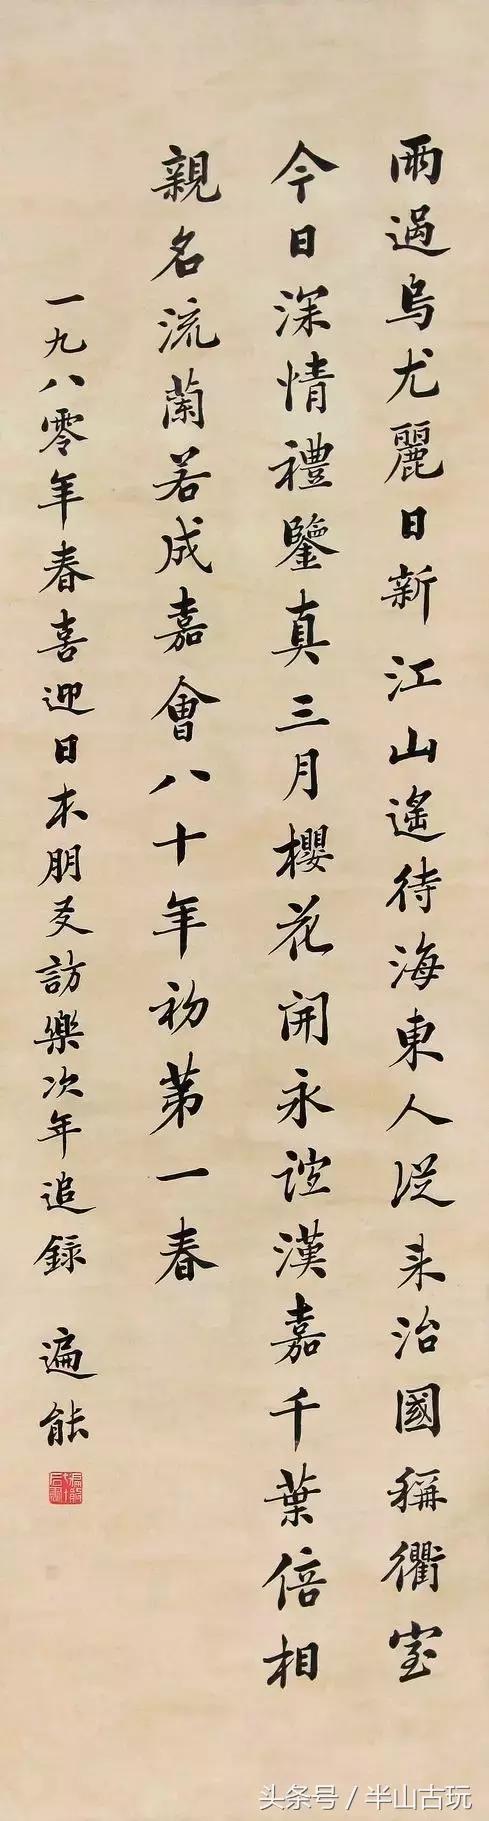 雨過烏尤麗日新江山遙待海東人從来治國稱衢室
今日深情禮鑒真三月櫻花開永誼漢嘉千葉倍相
親名流蘭若成嘉會八十年初第一春
一九八零年春喜迎日本朋友訪樂次年追録 遍能
头条号 / 半山古玩